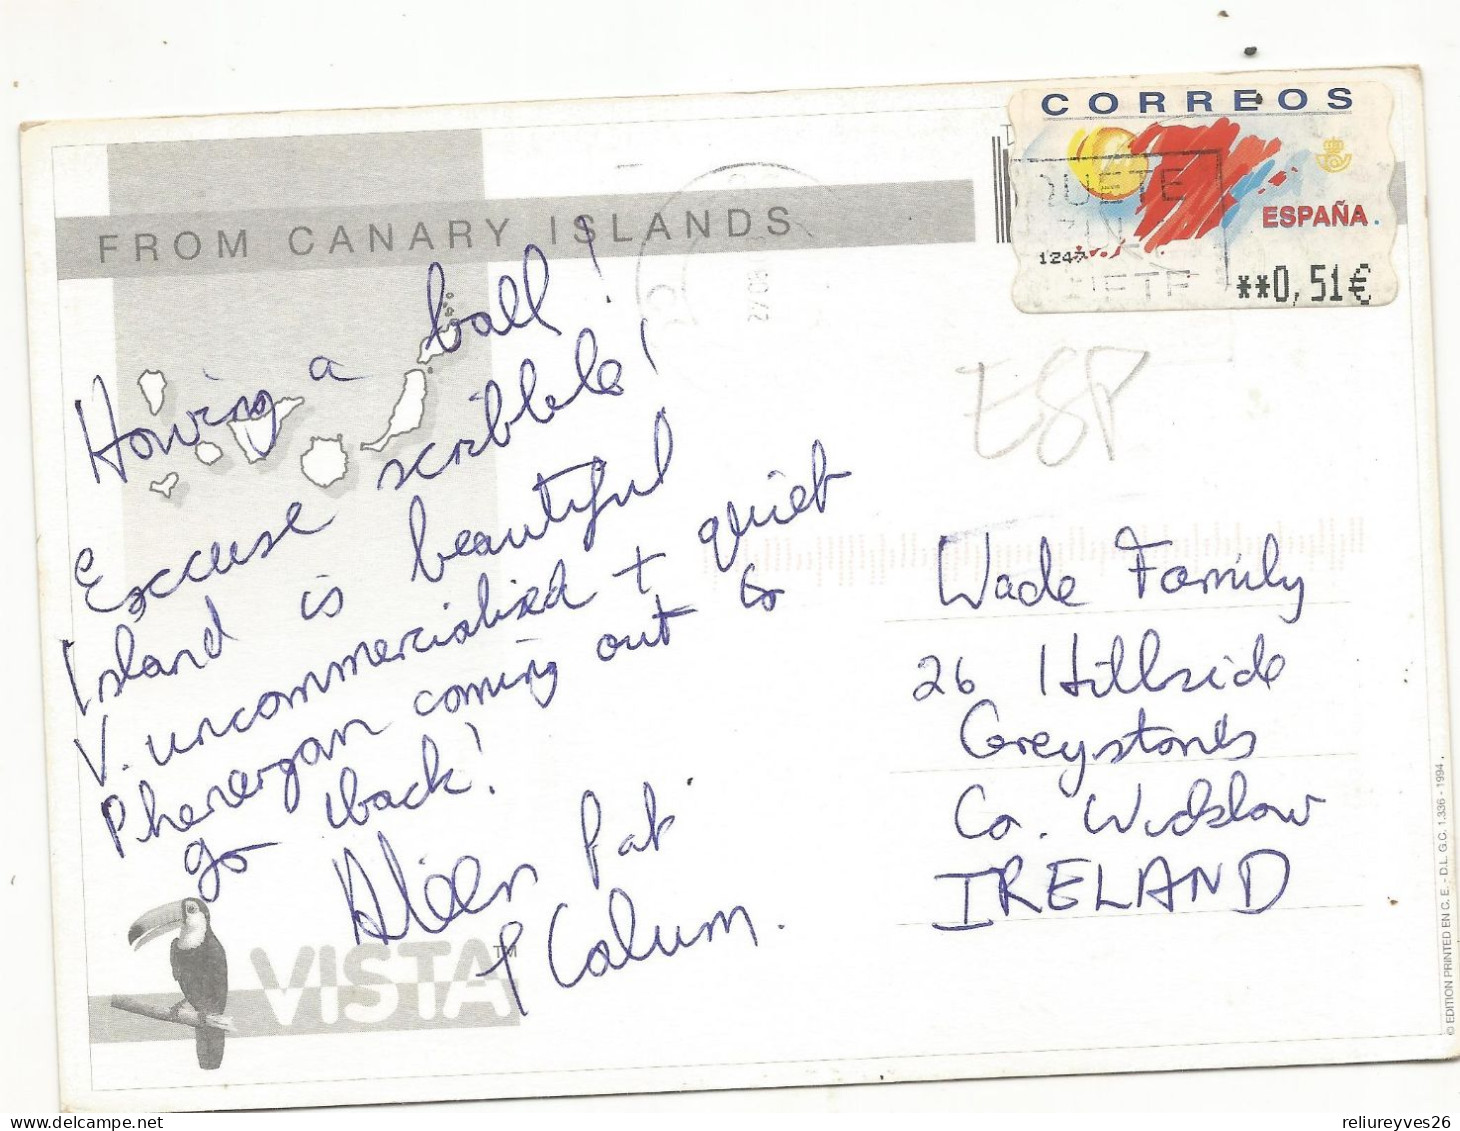 FROM CANARY ISLANDS
Having a ball!
Excuse scribble!
Island is beautiful
V. uncommercialised + quiet
Phenergan coming out to
go back!
Aileen Pat
+ Calum.
VISTA™
CORREOS
ESPAÑA
1247
**0,51€
QUETE
ESP
Wade Family
26 Hillside
Greystones
Co. Wicklow
IRELAND
© EDITION PRINTED EN C. E. - D.L. G.C. 1.336 - 1994.
reliureyves26